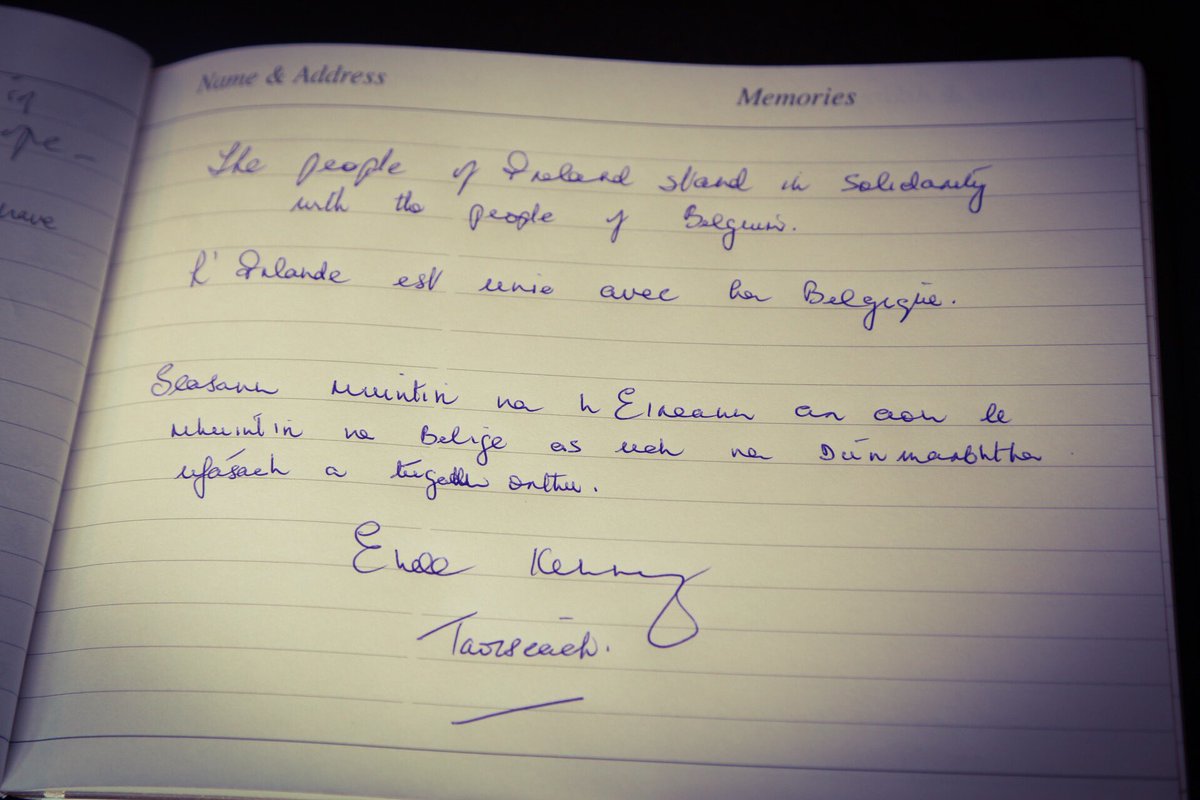 of
ope -
have
Name & Address
Memories
The people of Ireland stand in solidarity
with the people of Belgium.
L'Irlande est unie avec la Belgique.
Seasann muintir na hÉireann an aon le
mhuintir na Beilge as uch na Dúnmarbhtha
ufásach a tugadh orthu.
Enda Kenny
Taoiseach.